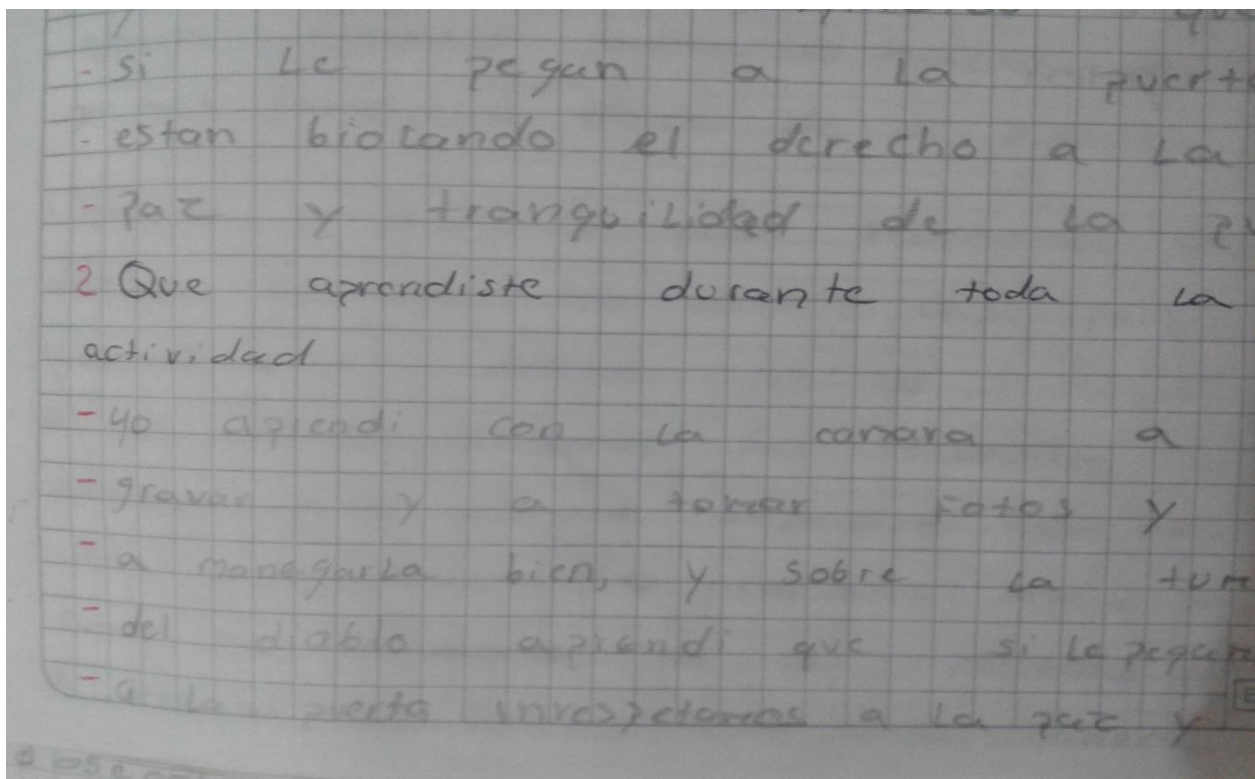 - si Le pegan a La puert
- estan biolando el derecho a La
- Paz y tranquilidad de La
2 Que aprendiste durante toda La
actividad
- yo aprendi con La camara a
- gravar y a tomar Fotos y
- a manegarLa bien, y sobre La
- del diablo aprendi que si Le pegan
- a La puerta irrespetamos a La paz y